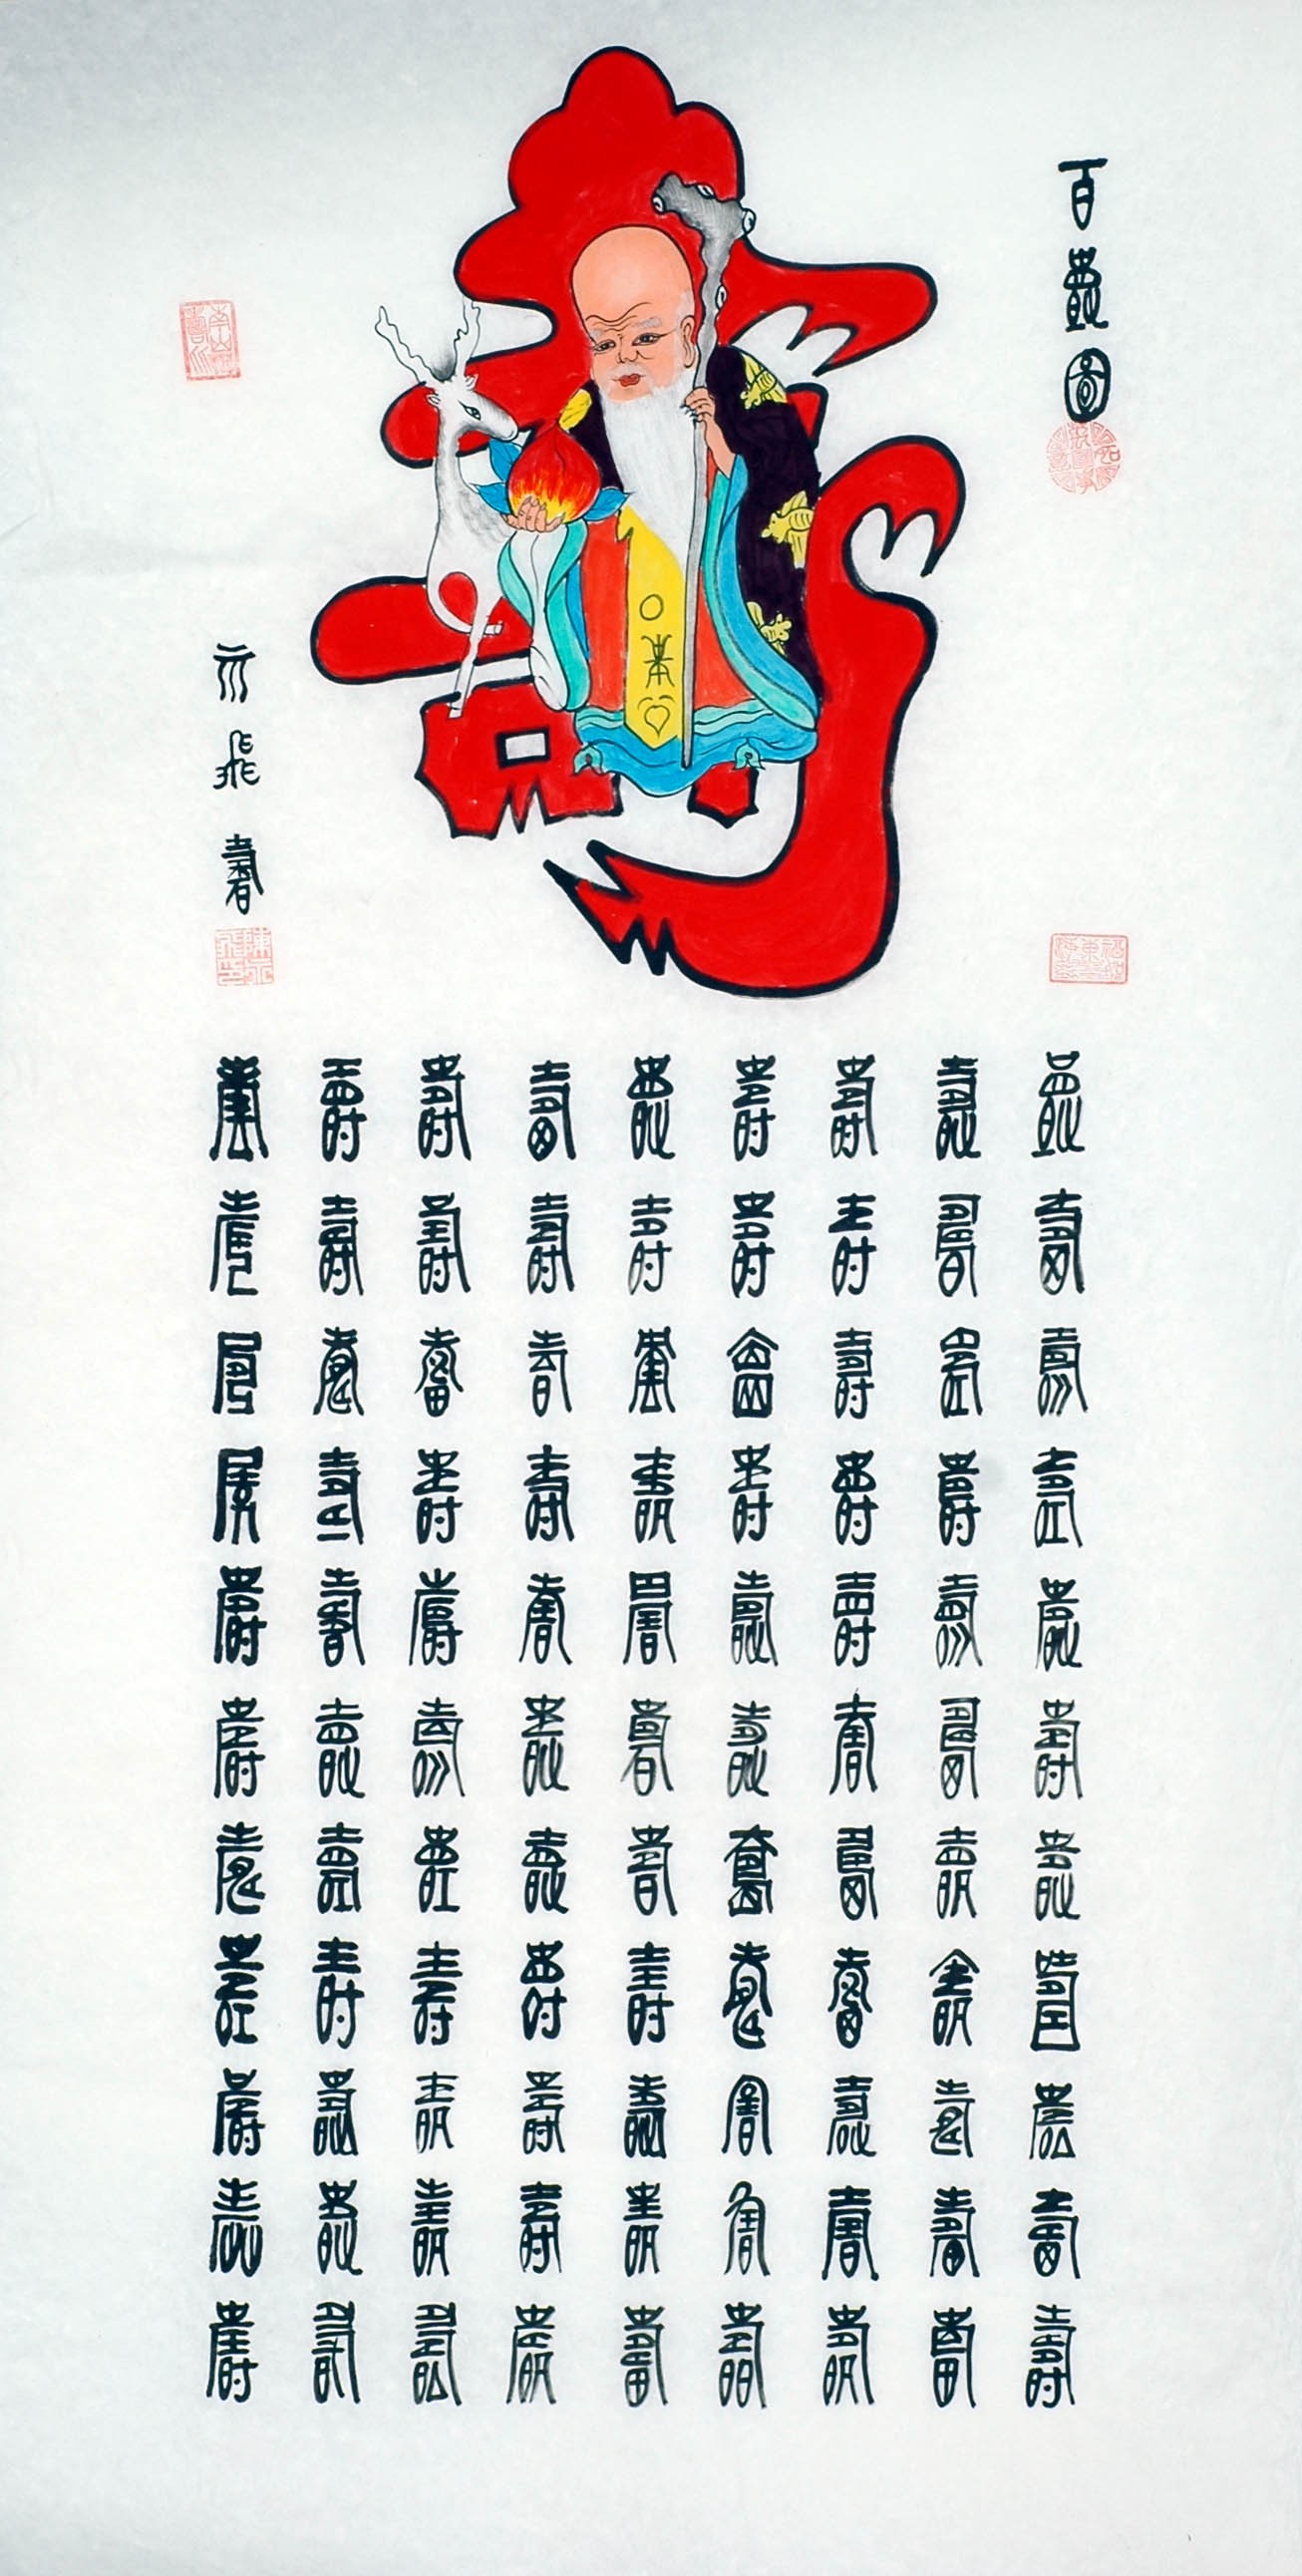 百壽圖
壽
壽壽壽壽壽壽壽壽壽壽壽
壽壽壽壽壽壽壽壽壽壽壽
壽壽壽壽壽壽壽壽壽壽壽
壽壽壽壽壽壽壽壽壽壽壽
壽壽壽壽壽壽壽壽壽壽壽
壽壽壽壽壽壽壽壽壽壽壽
壽壽壽壽壽壽壽壽壽壽壽
壽壽壽壽壽壽壽壽壽壽壽
壽壽壽壽壽壽壽壽壽壽壽
飛書